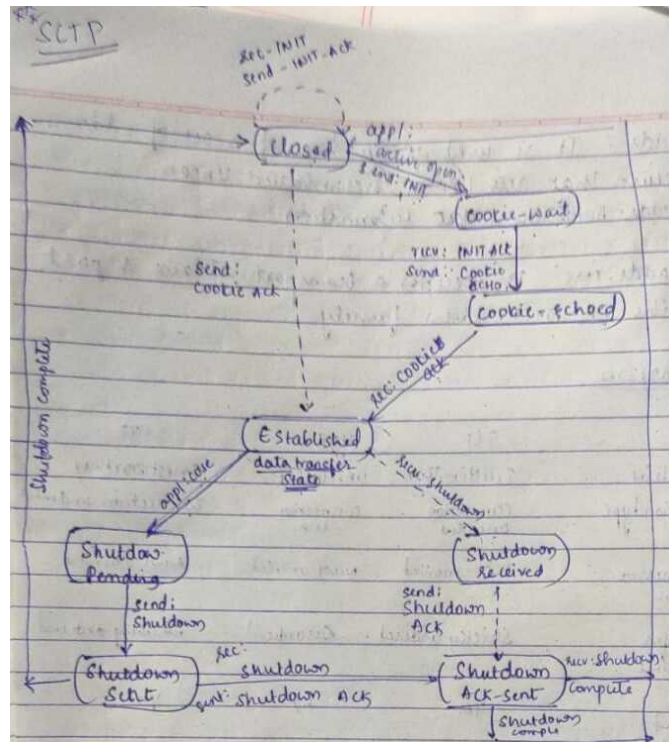 SCTP
rec-INIT
send-INIT-Ack
Closed
appl:
active open
send: INIT
Cookie-wait
recv: INIT Ack
send: Cookie
ECHO
Cookie-Echoed
send:
Cookie Ack
rec: Cookie
ack
Shutdown complete
Established
data transfer
state
appl: close
recv: shutdown
Shutdow
Pending
Shutdown
received
send:
Shutdown
send:
Shutdown
ACK
Shutdown
Sent
rec:
shutdown
sent: shutdown ACK
Shutdown
ACK-sent
recv: shutdown
complete
shutdown
comple